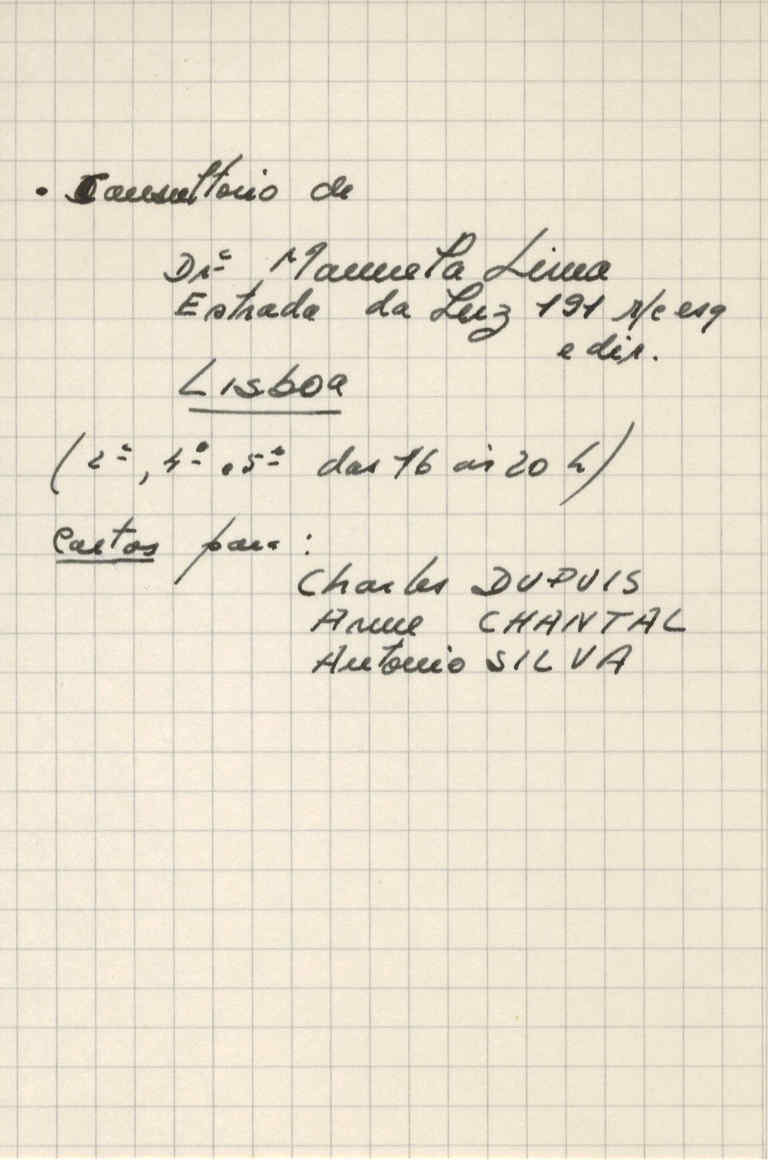 • Consultorio de
Drª Manuela Lima
Estrada da Luz 191 r/c esq
e dir.
Lisboa
(2ª, 4ª e 5ª das 16 às 20 h)
Cartas para:
Charles DUPUIS
Anne CHANTAL
Antonio SILVA